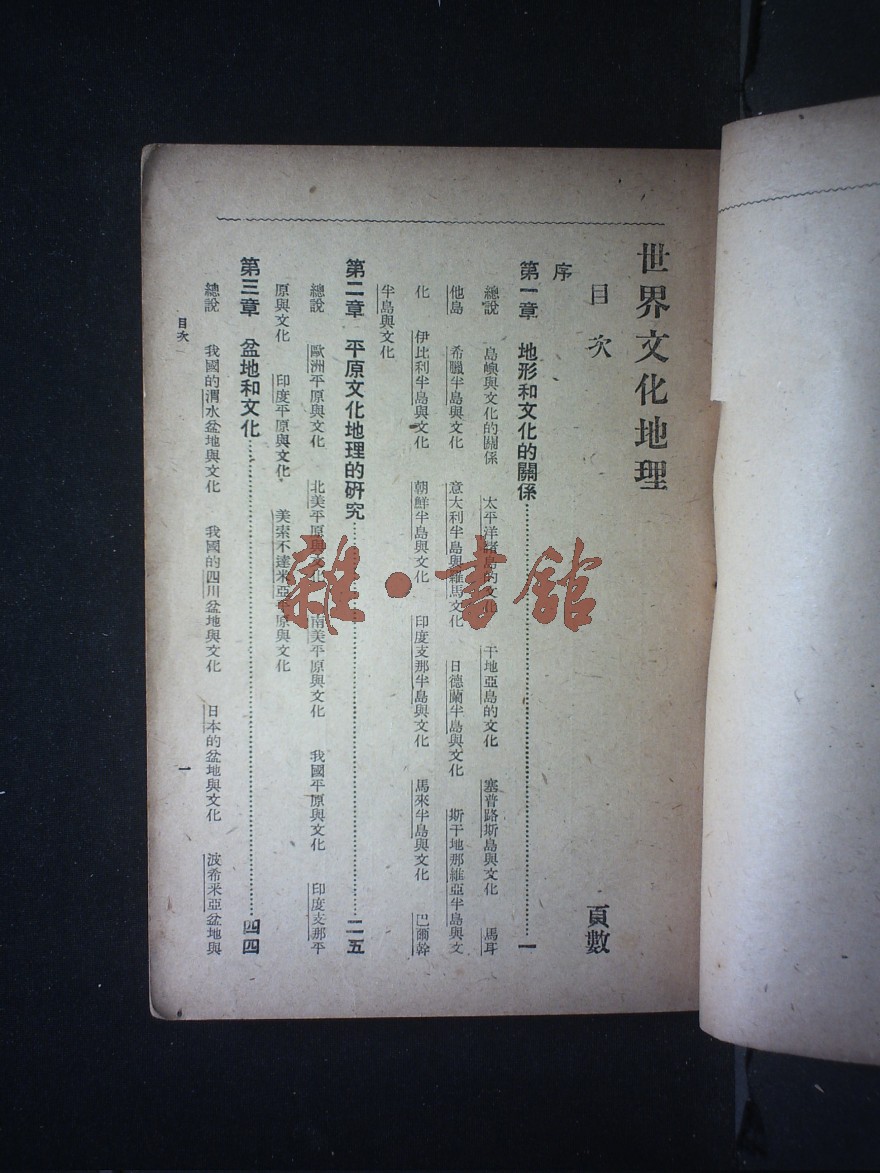 世界文化地理
目次　頁數
序
第一章　地形和文化的關係……一
總說　島嶼與文化的關係　太平洋諸島的文化　干地亞島的文化　塞普路斯島與文化　馬耳
他島　希臘半島與文化　意大利半島與羅馬文化　日德蘭半島與文化　斯干地那維亞半島與文
化　伊比利半島與文化　朝鮮半島與文化　印度支那半島與文化　馬來半島與文化　巴爾幹
半島與文化
第二章　平原文化地理的研究……二五
總說　歐洲平原與文化　北美平原與文化　南美平原與文化　我國平原與文化　印度支那平
原與文化　印度平原與文化　美索不達米亞平原與文化
第三章　盆地和文化……四四
總說　我國的渭水盆地與文化　我國的四川盆地與文化　日本的盆地與文化　波希米亞盆地與
目次　一
雜·書館